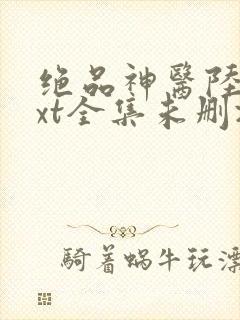 绝品神醫陸
xt全集未删
騎着蝸牛玩漂